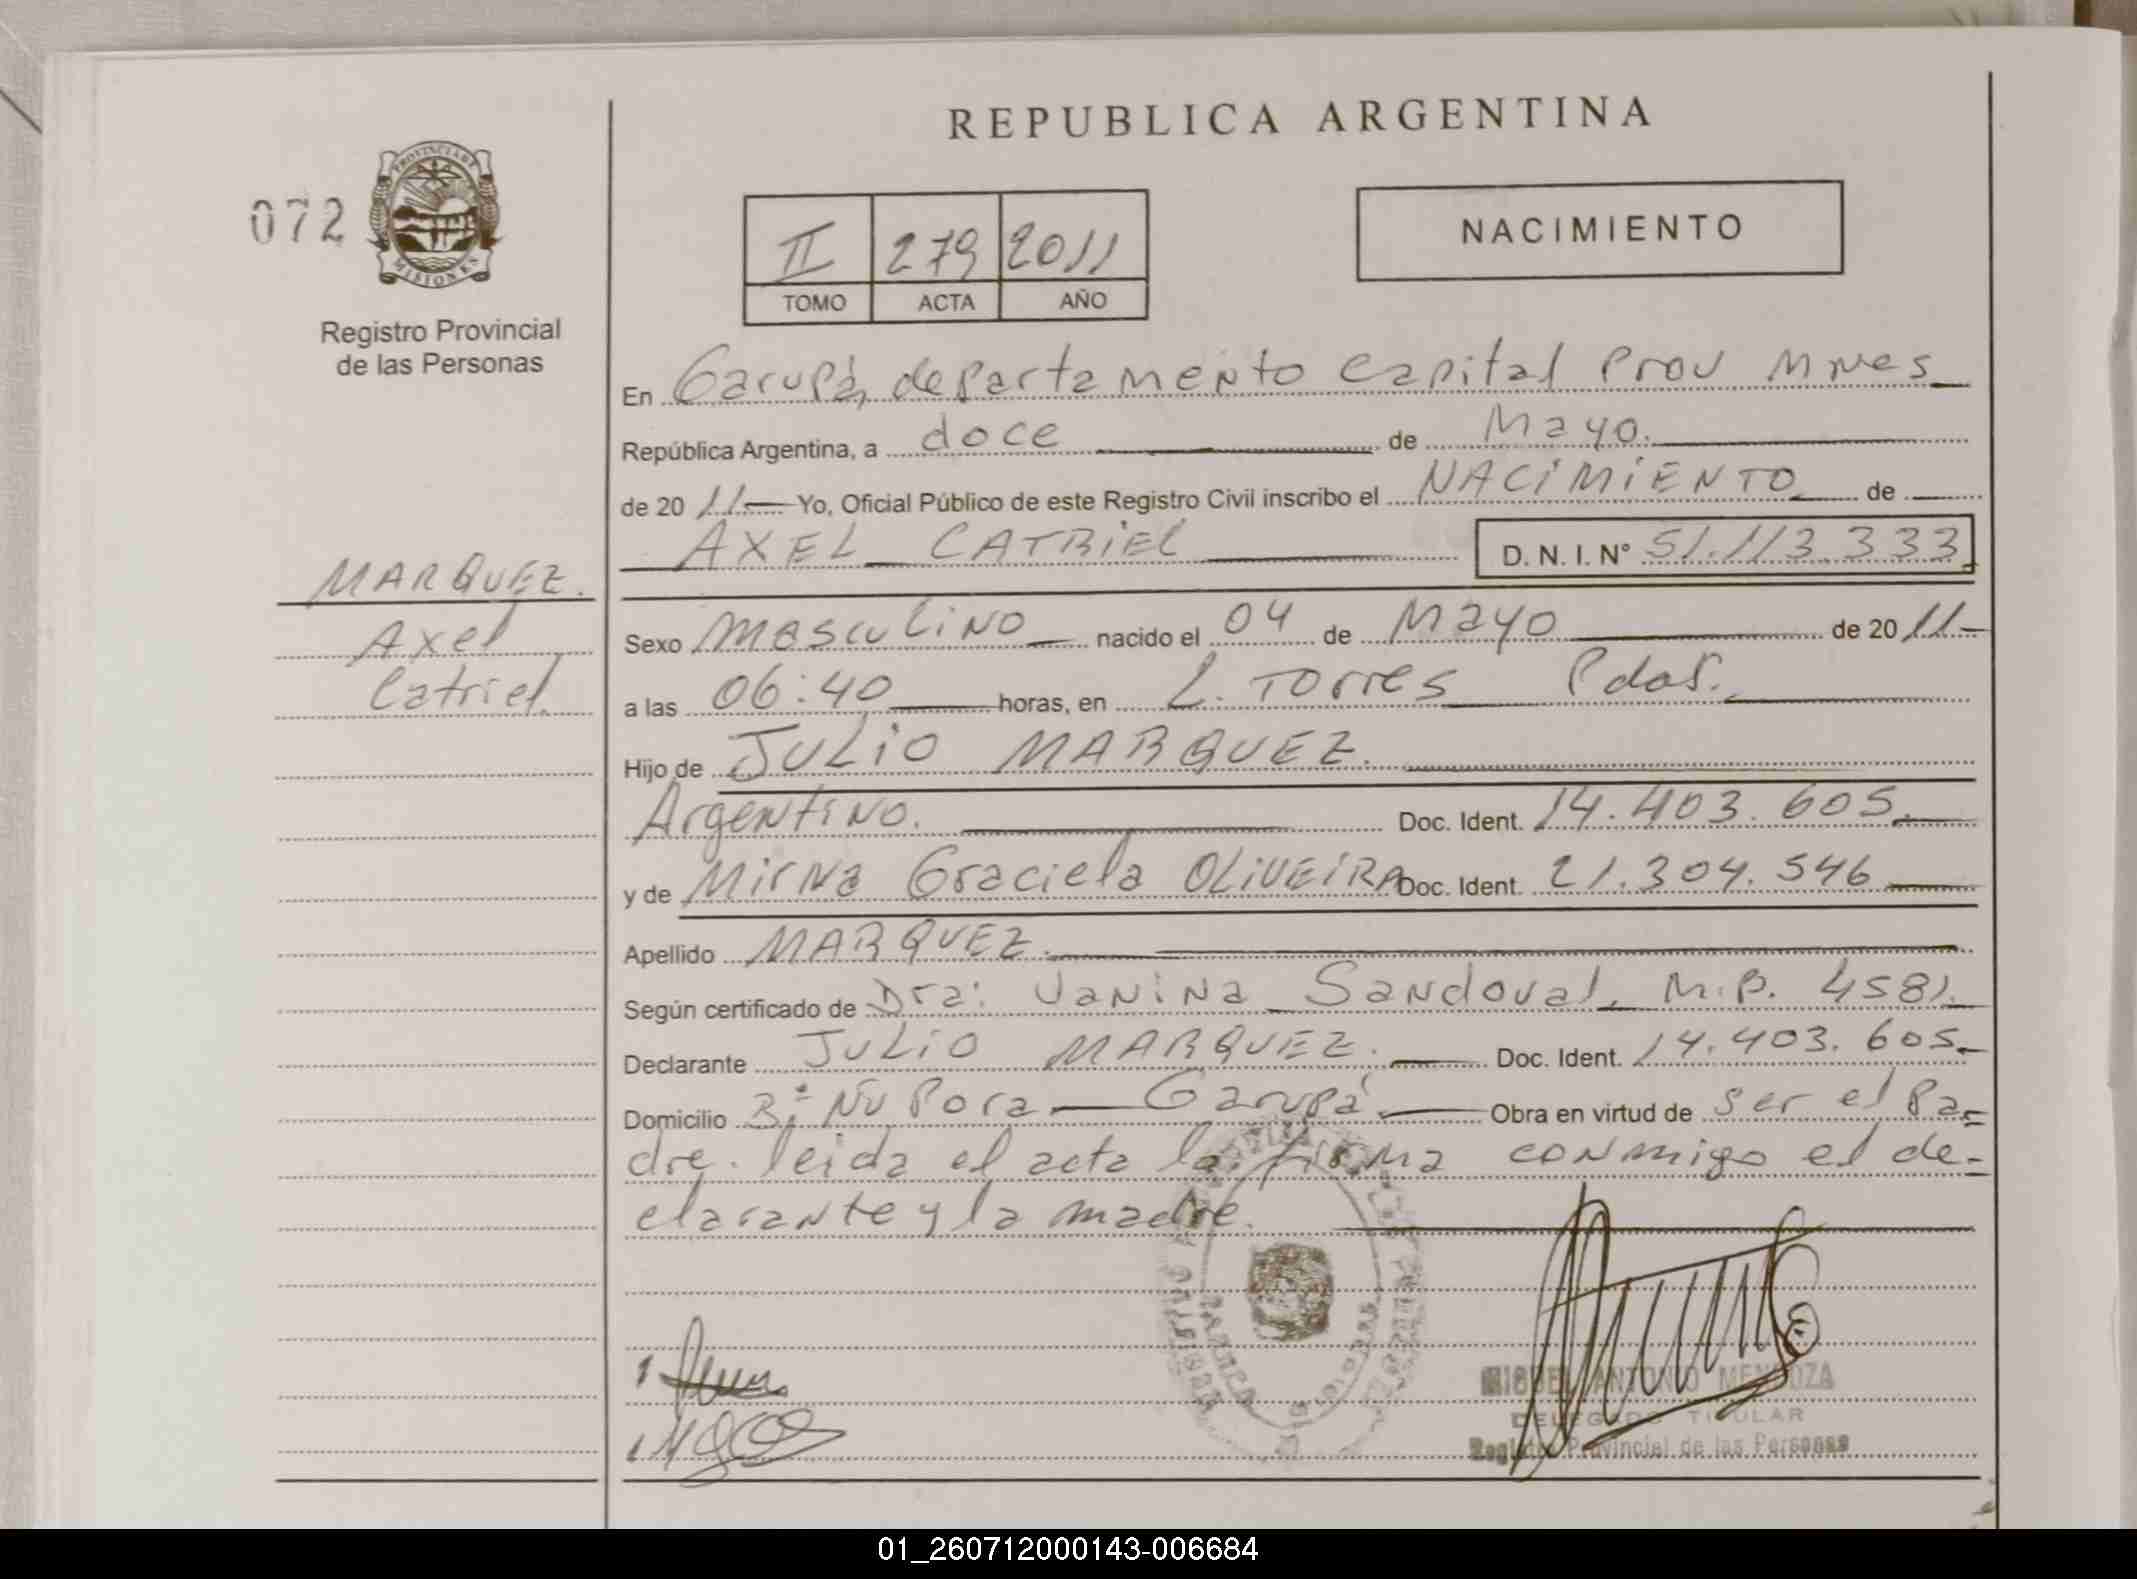 REPUBLICA ARGENTINA
072
PROVINCIA DE
MISIONES
Registro Provincial
de las Personas
II 279 2011
TOMO ACTA AÑO
NACIMIENTO
En Garupá, departamento Capital Prov Mnes
República Argentina, a doce de Mayo.
de 2011 Yo, Oficial Público de este Registro Civil inscribo el NACIMIENTO de
AXEL CATRIEL D. N. I. N° 51.113.333
MARQUEZ.
Axel
Catriel.
Sexo masculino nacido el 04 de Mayo de 2011-
a las 06:40 horas, en L. Torres Pdas.
Hijo de JULIO MARQUEZ.
Argentino. Doc. Ident. 14.403.605.
y de Mirna Graciela OLIVEIRA Doc. Ident. 21.304.546
Apellido MARQUEZ.
Según certificado de Dra: Vanina Sandoval. M.P. 4581.
Declarante JULIO MARQUEZ. Doc. Ident. 14.403.605.
Domicilio B° Ñu Pora - Garupá Obra en virtud de ser el Pa-
dre. leida el acta la firma conmigo el de-
clarante y la madre.
MIGUEL ANTONIO MENDOZA
DELEGADO TITULAR
Registro Provincial de las Personas
01_260712000143-006684